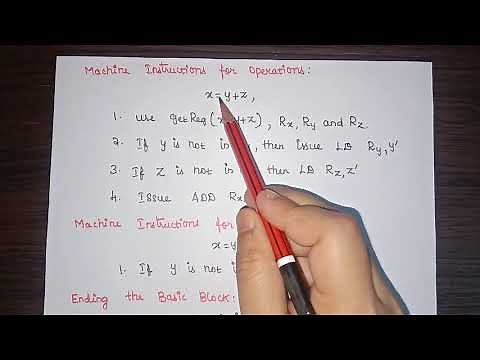 Machine Instructions for Operations:
x=y+z,
1. Use getReg( y+z), Rx, Ry and Rz.
2. If y is not in , then issue LD Ry,y'
3. If z is not in then LD Rz,z'
4. Issue ADD Rx
Machine Instructions for
x=y
1. If y is not i
Ending the Basic Block: